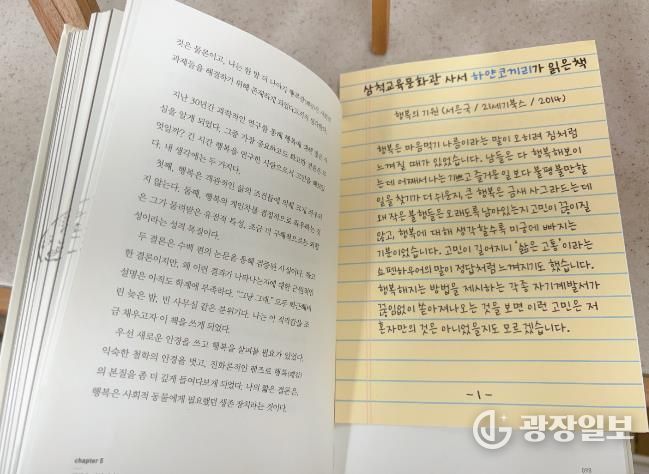 것은 물론이고, 나는 한 발 더 나아가
과제들을 해결하기 위해 존재하게 되었다고까지 생각한다.
지난 30년간 과학적인 연구를 통해 행복에 대한 많은 사
실을 알게 되었다. 그중 가장 중요하고도 확고한 결론은 무
엇일까? 긴 시간 행복을 연구한 사람으로서 고민을 해보았
다. 내 생각에는 두 가지다.
첫째, 행복은 객관적인 삶의 조건들에 의해 크게 좌우되
지 않는다. 둘째, 행복의 개인차를 결정적으로 좌우하는 것
은 그가 물려받은 유전적 특성, 조금 더 구체적으로는 외향
성이라는 성격 특질이다.
두 결론은 수백 편의 논문을 통해 검증된 사실이다. 확고
한 결론이지만, 왜 이런 결과가 나타나는지에 대한 근원적인
설명은 아직도 학계에 부족하다. "그냥 그래." 모두 퇴근해버
린 늦은 밤, 빈 사무실 같은 분위기다. 나는 이 적막감을 조
금 채우고자 이 책을 쓰게 되었다.
우선 새로운 안경을 쓰고 행복을 살펴볼 필요가 있었다.
익숙한 철학의 안경을 벗고, 진화론적인 렌즈로 행복(쾌감)
의 본질을 좀 더 깊게 들여다보게 되었다. 나의 짧은 결론은,
행복은 사회적 동물에게 필요했던 생존 장치라는 것이다.
chapter 5
삼척교육문화관 사서 하얀코끼리가 읽은책
행복의 기원 (서은국 / 21세기북스 / 2014)
행복은 마음먹기 나름이라는 말이 오히려 짐처럼
느껴질 때가 있었습니다. 남들은 다 행복해보이
는데 어째서 나는 기쁘고 즐거운 일보다 불평 불만할
일을 찾기가 더 쉬운지, 큰 행복은 금새 사그라드는데
왜 작은 불행들은 오래도록 남아있는지 고민이 끊이질
않고, 행복에 대해 생각할수록 미궁에 빠지는
기분이었습니다. 고민이 길어지니 '삶은 고통'이라는
쇼펜하우어의 말이 정답처럼 느껴지기도 했습니다.
행복해지는 방법을 제시하는 각종 자기계발서가
끊임없이 쏟아져나오는 것을 보면 이런 고민은 저
혼자만의 것은 아니었을지도 모르겠습니다.
- 1 -
광장일보